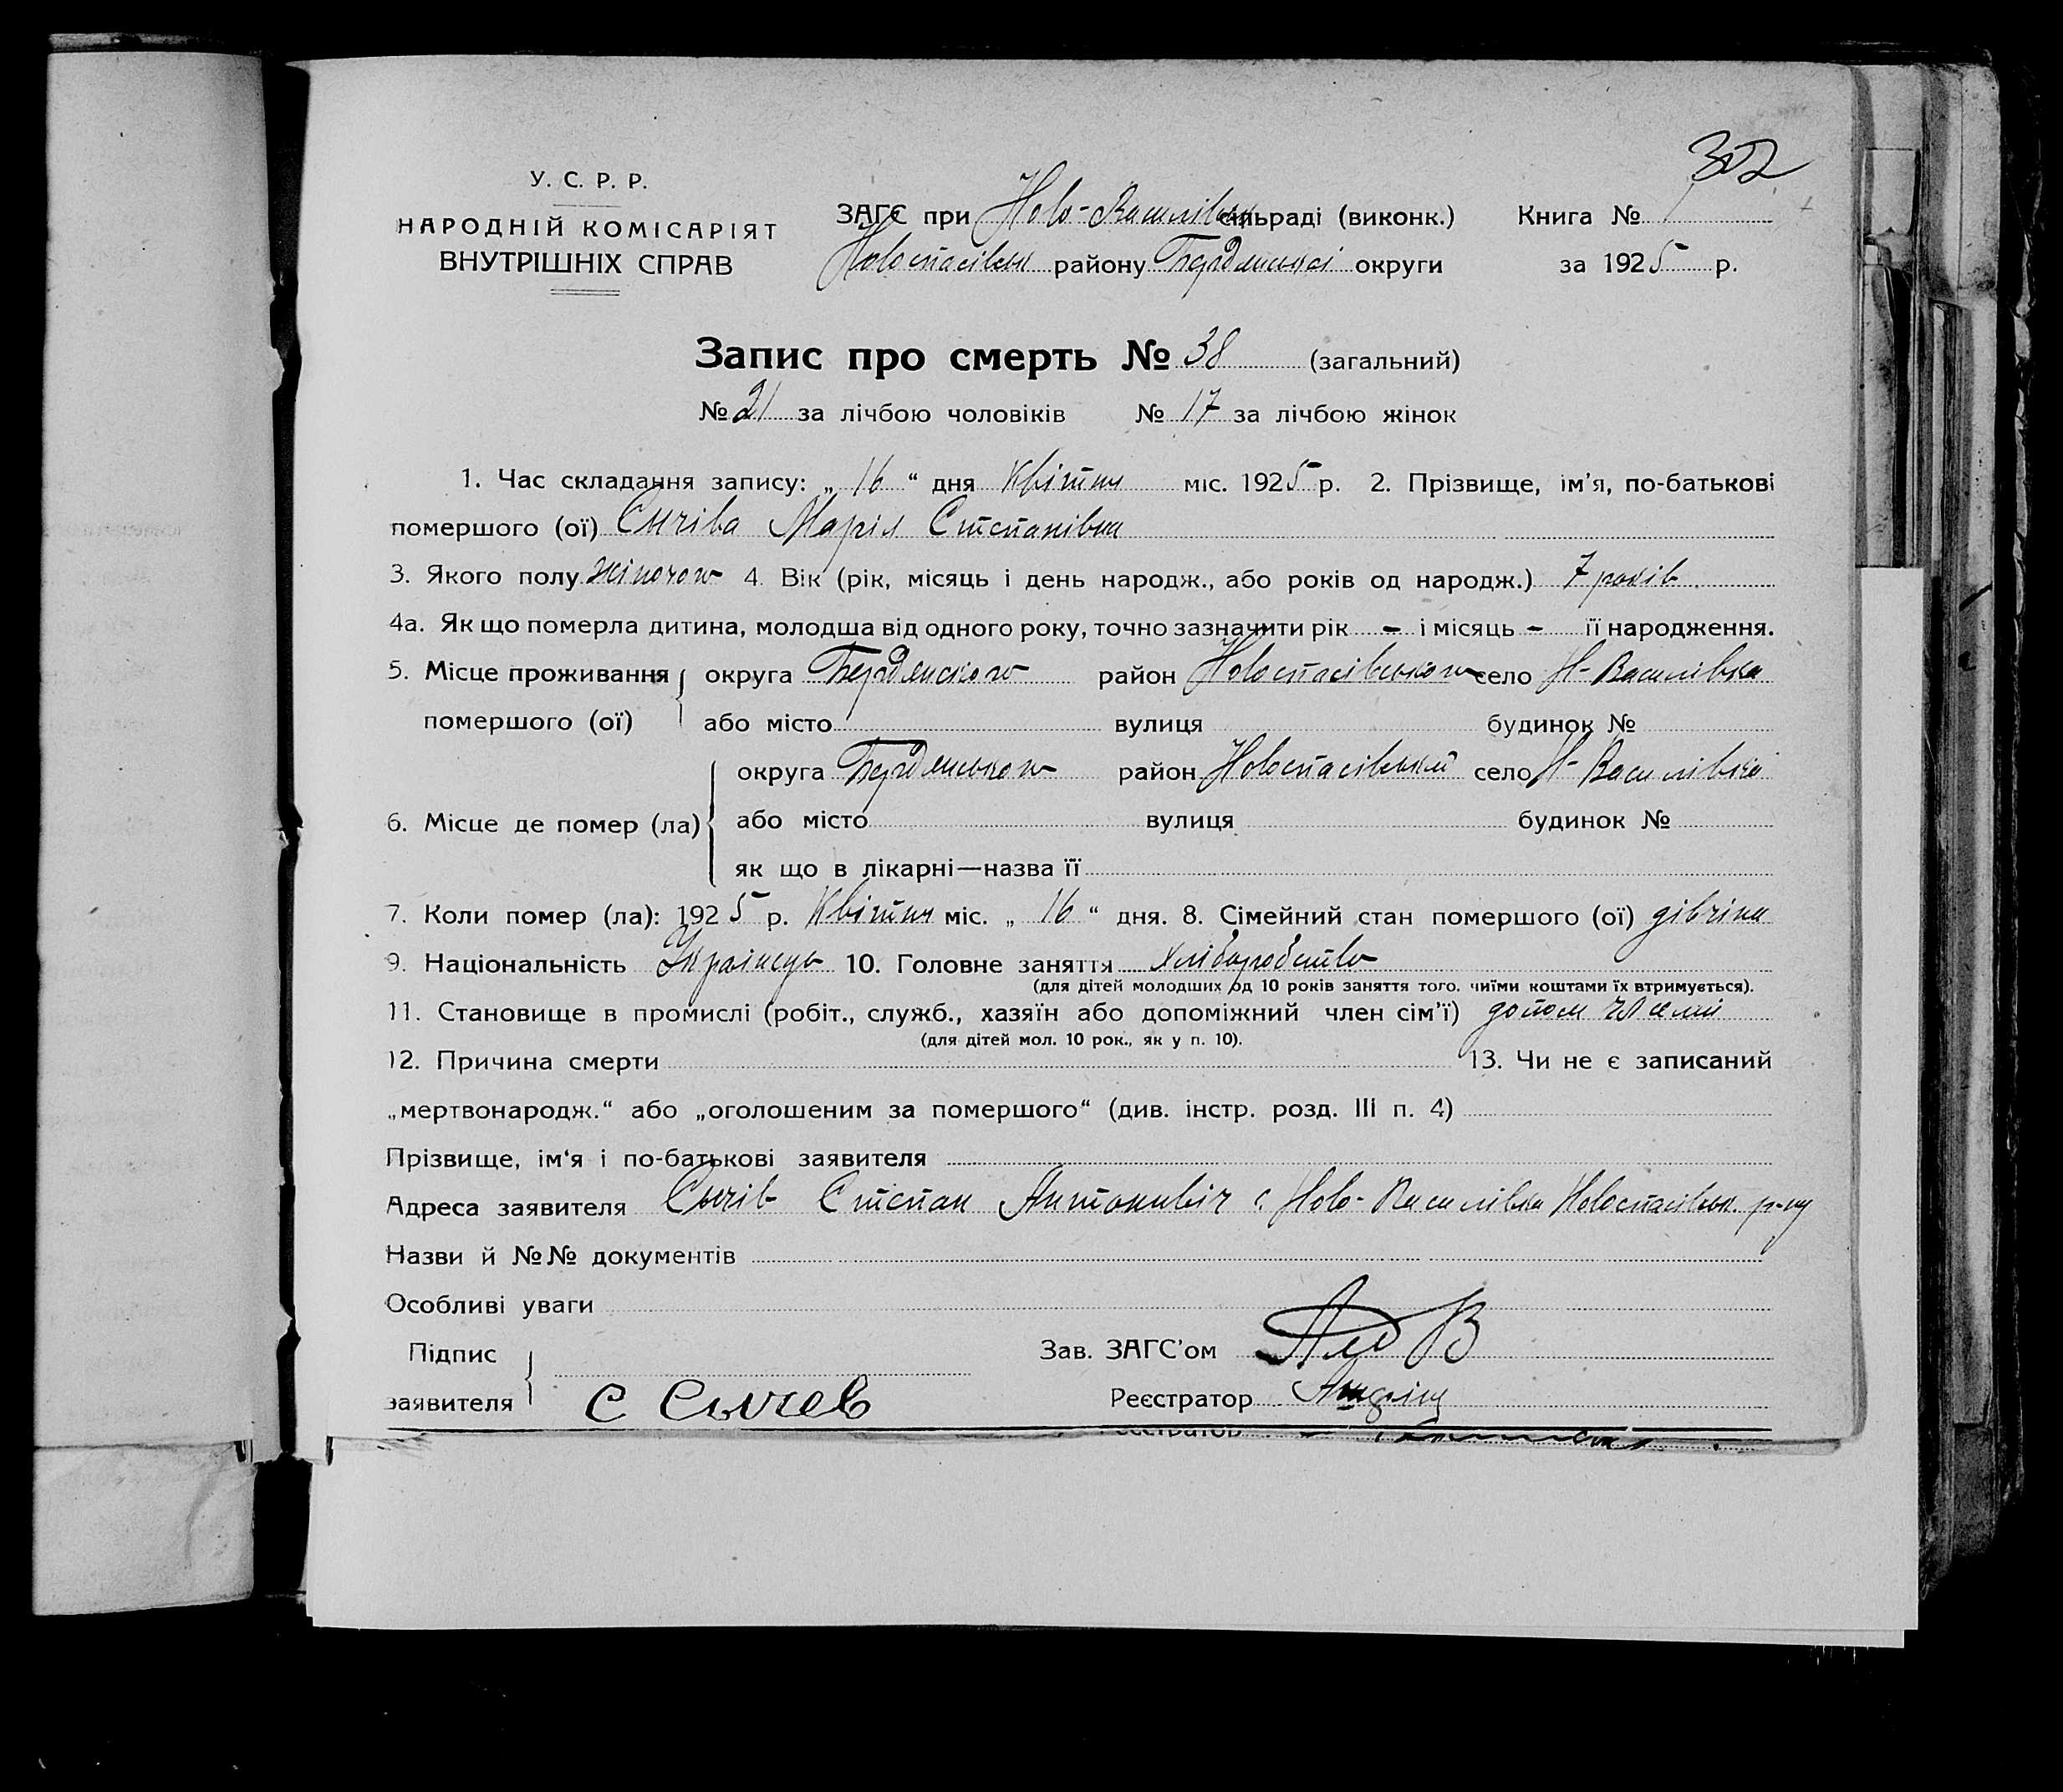 302
У. С. Р. Р.
НАРОДНІЙ КОМІСАРІЯТ
ВНУТРІШНІХ СПРАВ
ЗАГС при Ново-Василівск сільраді (виконк.) Книга №
Новоспасівськ району Бердянської округи за 1925 р.
Запис про смерть № 38 (загальний)
№ 21 за лічбою чоловіків № 17 за лічбою жінок
1. Час складання запису: „ 16 “ дня Квітня міс. 1925 р. 2. Прізвище, ім’я, по-батькові
помершого (ої) Сичіва Марія Степанівна
3. Якого полу жіночого 4. Вік (рік, місяць і день народж., або років од народж.) 7 років
4а. Як що померла дитина, молодша від одного року, точно зазначити рік – і місяць – її народження.
5. Місце проживання округа Бердянского район Новоспасівського село Н-Василівка
помершого (ої) або місто вулиця будинок №
округа Бердянського район Новоспасівський село Н-Василівка
6. Місце де помер (ла) або місто вулиця будинок №
як що в лікарні—назва її
7. Коли помер (ла): 1925 р. Квітня міс. „ 16 “ дня. 8. Сімейний стан помершого (ої) дівчина
9. Національність 10. Головне заняття хліборобство
(для дітей молодших од 10 років заняття того. чиїми коштами їх втримується).
11. Становище в промислі (робіт., служб., хазяїн або допоміжний член сім’ї) допом чл семії
(для дітей мол. 10 рок., як у п. 10).
12. Причина смерти 13. Чи не є записаний
„мертвонародж.“ або „оголошеним за помершого“ (див. інстр. розд. III п. 4)
Прізвище, ім‘я і по-батькові заявителя
Адреса заявителя Сычів Степан Антонивіч с. Ново-Василівка Новоспасівськ. р-ну
Назви й №№ документів
Особливі уваги
Підпис Зав. ЗАГС’ом
заявителя С Сычев Реєстратор
Реєстратор